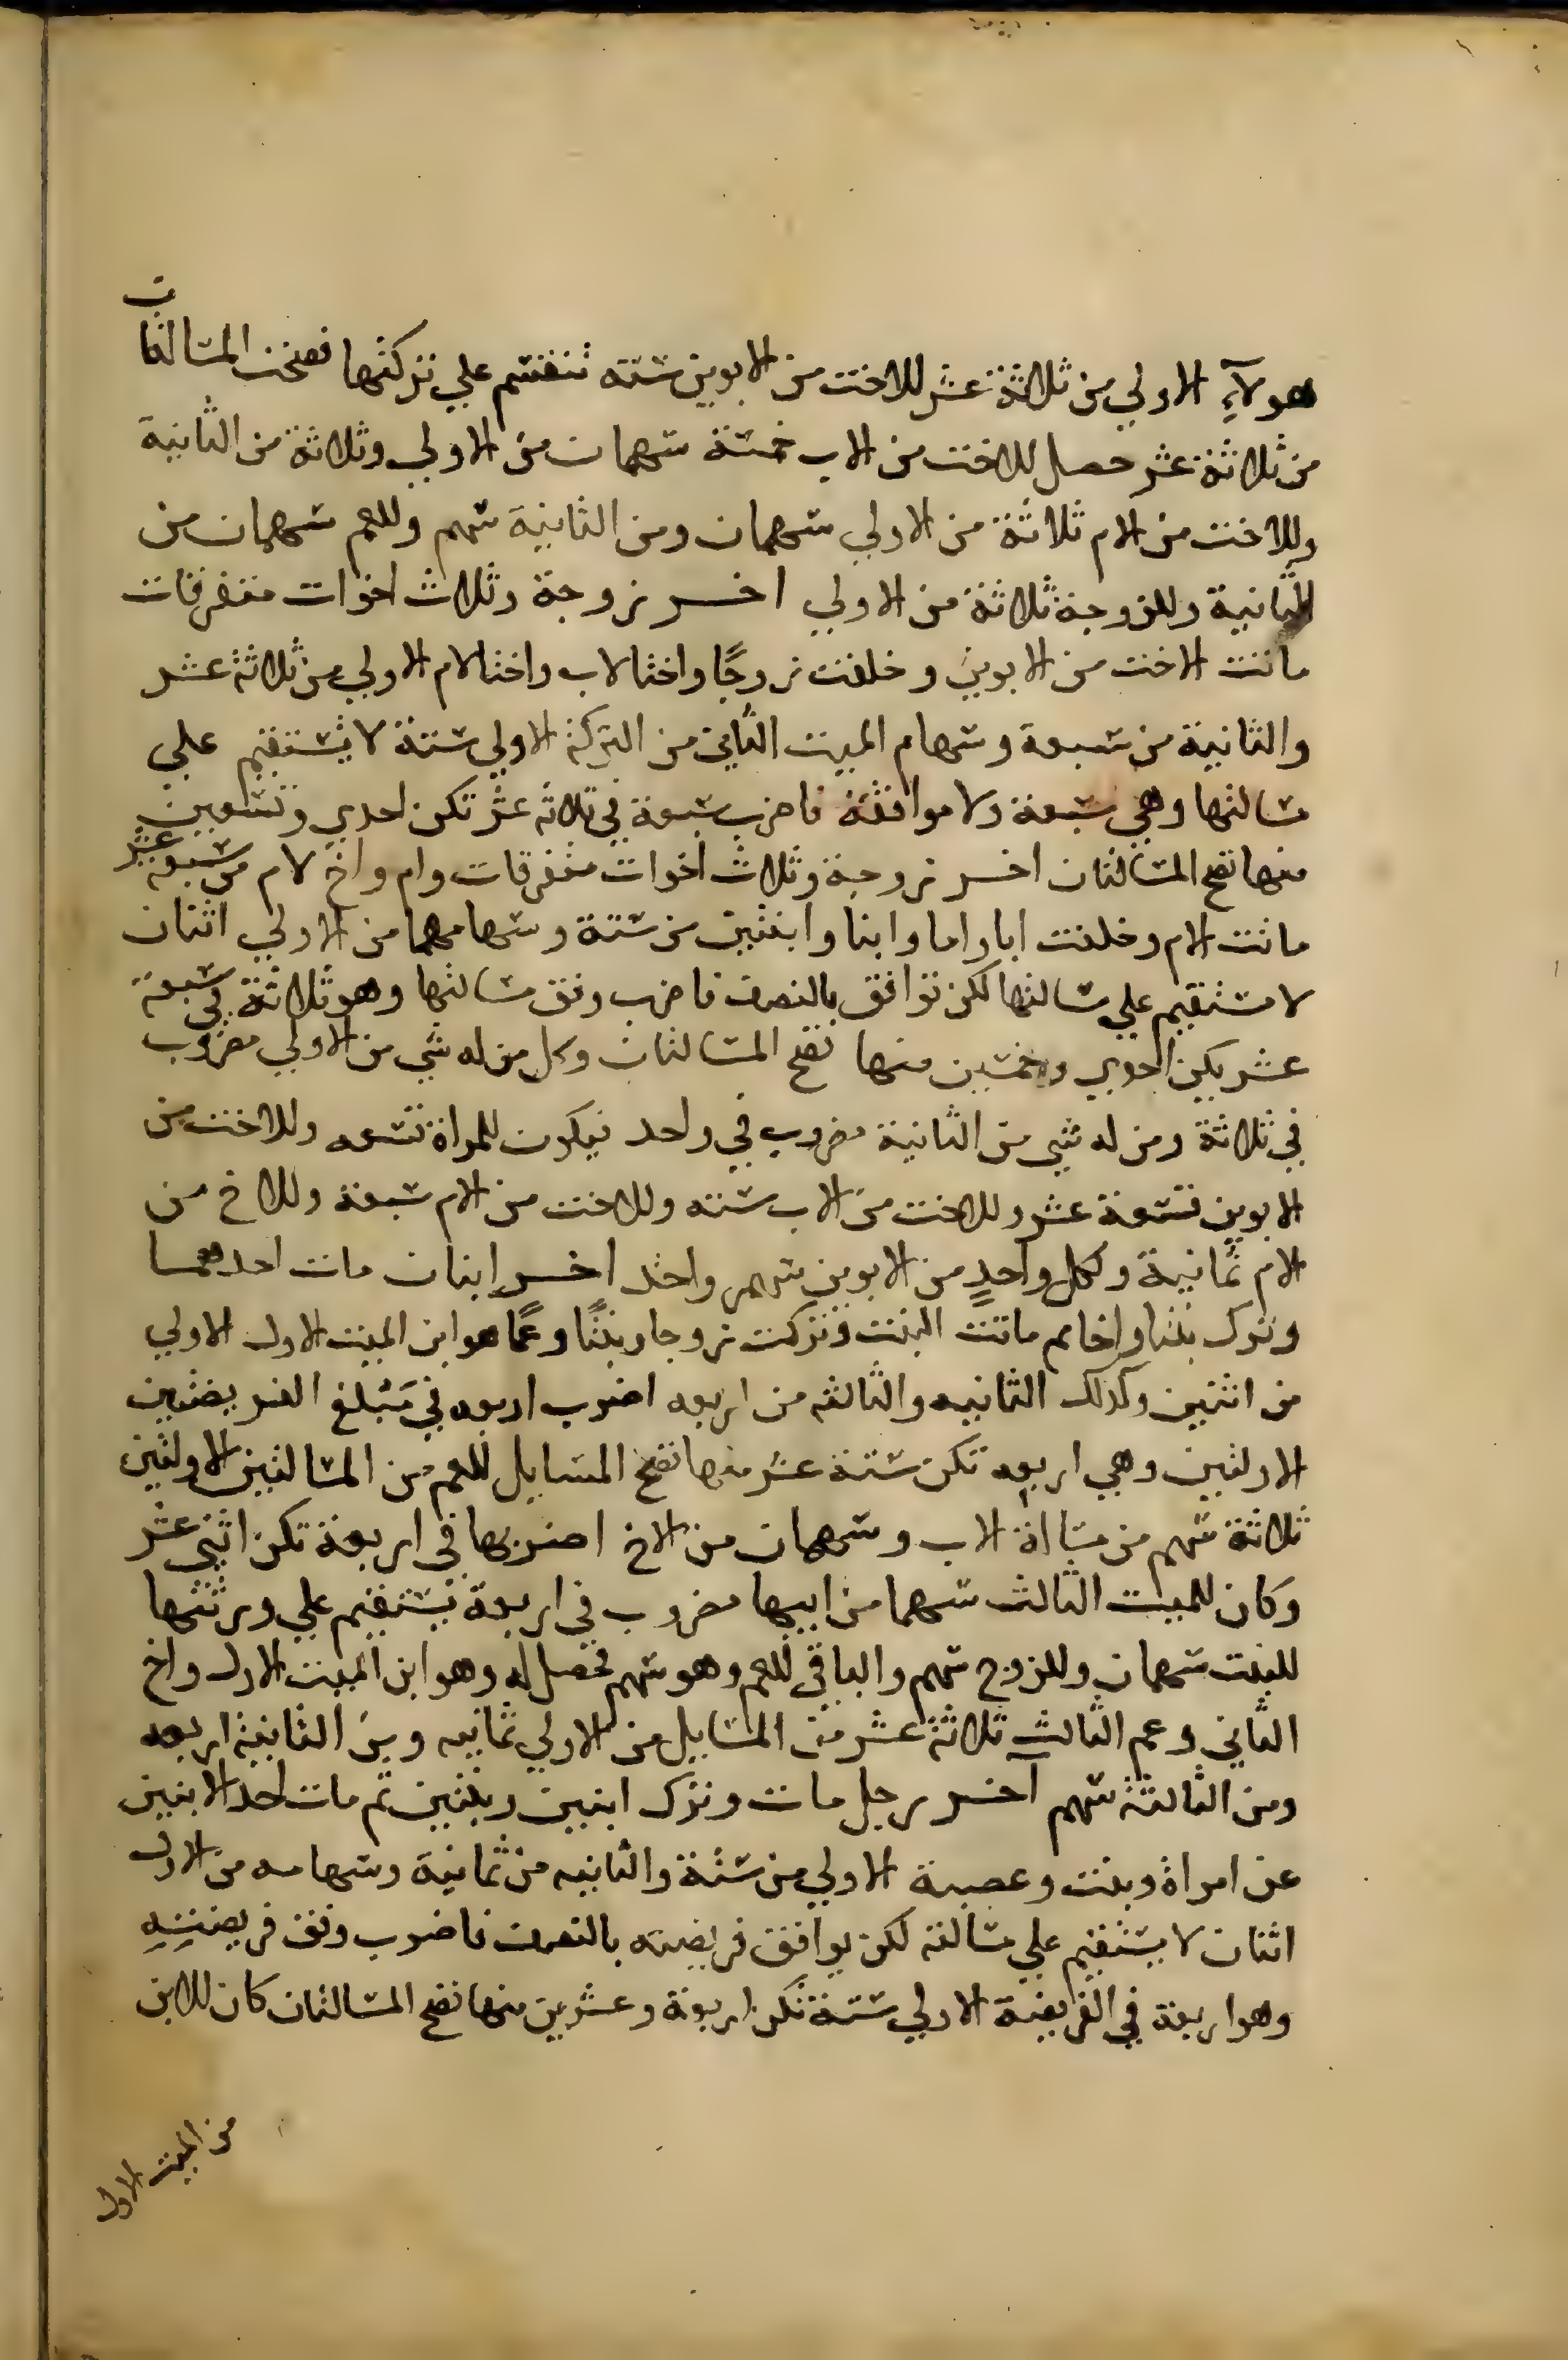 هولآءِ الاولي من ثلاثة عشر للاخت من الابوين ستته تنقسم علي تركتها فصحت المسالتان
من ثلاثة عشر حصل للاخت من الاب خمسة سهمان من الاولي وثلاثة من الثانية
وللاخت من الام ثلاثة من الاولي سهمان ومن الثانية سهم وللعم سهمان من
الثانية وللزوجة ثلاثة من الاولي اخر زوجة وثلاث اخوات متفرقات
ماتت الاخت من الابوين وخلفت زوجًا واختا لاب واختا لام الاولي من ثلاثة عشر
والثانية من سبعة وسهام الميت الثاني من التركة الاولي ستة لا يستقيم علي
مسالتها وهي سبعة ولا موافقة فاضرب سبعة في ثلاثه عشر تكن احدي وتسعين
منها تصح المسالتان اخر زوجة وثلاث اخوات متفرقات وام واخ لام من سبعة عشر
ماتت الام وخلفت ابا واما وابنا وابنتين من ستة وسهامهما من الاولي اثنان
لا يستقيم علي مسالتها لكن توافق بالنصف فاضرب وفق مسالتها وهو ثلاثة في سبعة
عشر يكن احدي وخمسين منها تصح المسالتان وكل من له شي من الاولي مضروب
في ثلاثة ومن له شي من الثانية مضروب في واحد فيكون للمراة تسعه وللاخت من
الابوين تسعة عشر وللاخت من الاب سته وللاخت من الام سبعة وللاخ من
الام ثمانية ولكل واحدٍ من الابوين سهم واحد اخر ابنان مات احدهما
وترك بنتا واخا ثم ماتت البنت وتركت زوجا وبنتًا وعمًا هو ابن الميت الاول الاولي
من اثنين وكذلك الثانيه والثالثه من اربعه اضرب اربعه في مبلغ الفريضتين
الاولتين وهي اربعه تكن ستة عشر منها تصح المسايل للعم من المسالتين الاولتين
ثلاثة سهم من مسالة الاب وسهمان من الاخ اضربها في اربعة تكن اثني عشر
وكان للميت الثالث سهما من ابيها مضروب في اربعة يستقيم علي ورثتها
للبنت سهمان وللزوج سهم والباقي للعم وهو سهم فحصل له وهو ابن الميت الاول واخ
الثاني وعم الثالث ثلاثة عشر من المسايل من الاولي ثمانيه ومن الثانية اربعه
ومن الثالثة سهم آخر رجل مات وترك ابنين وبنتين ثم مات احد الابنين
عن امراة وبنت وعصبة الاولي من ستة والثانيه من ثمانية وسهامه من الاول
اثنان لا يستقيم علي مسالته لكن يوافق فريضته بالنصف فاضرب وفق فريضتِهِ
وهو اربعة في الفريضة الاولي ستة تكن اربعة وعشرين منها تصح المسالتان كان للابن
من الميت الاول